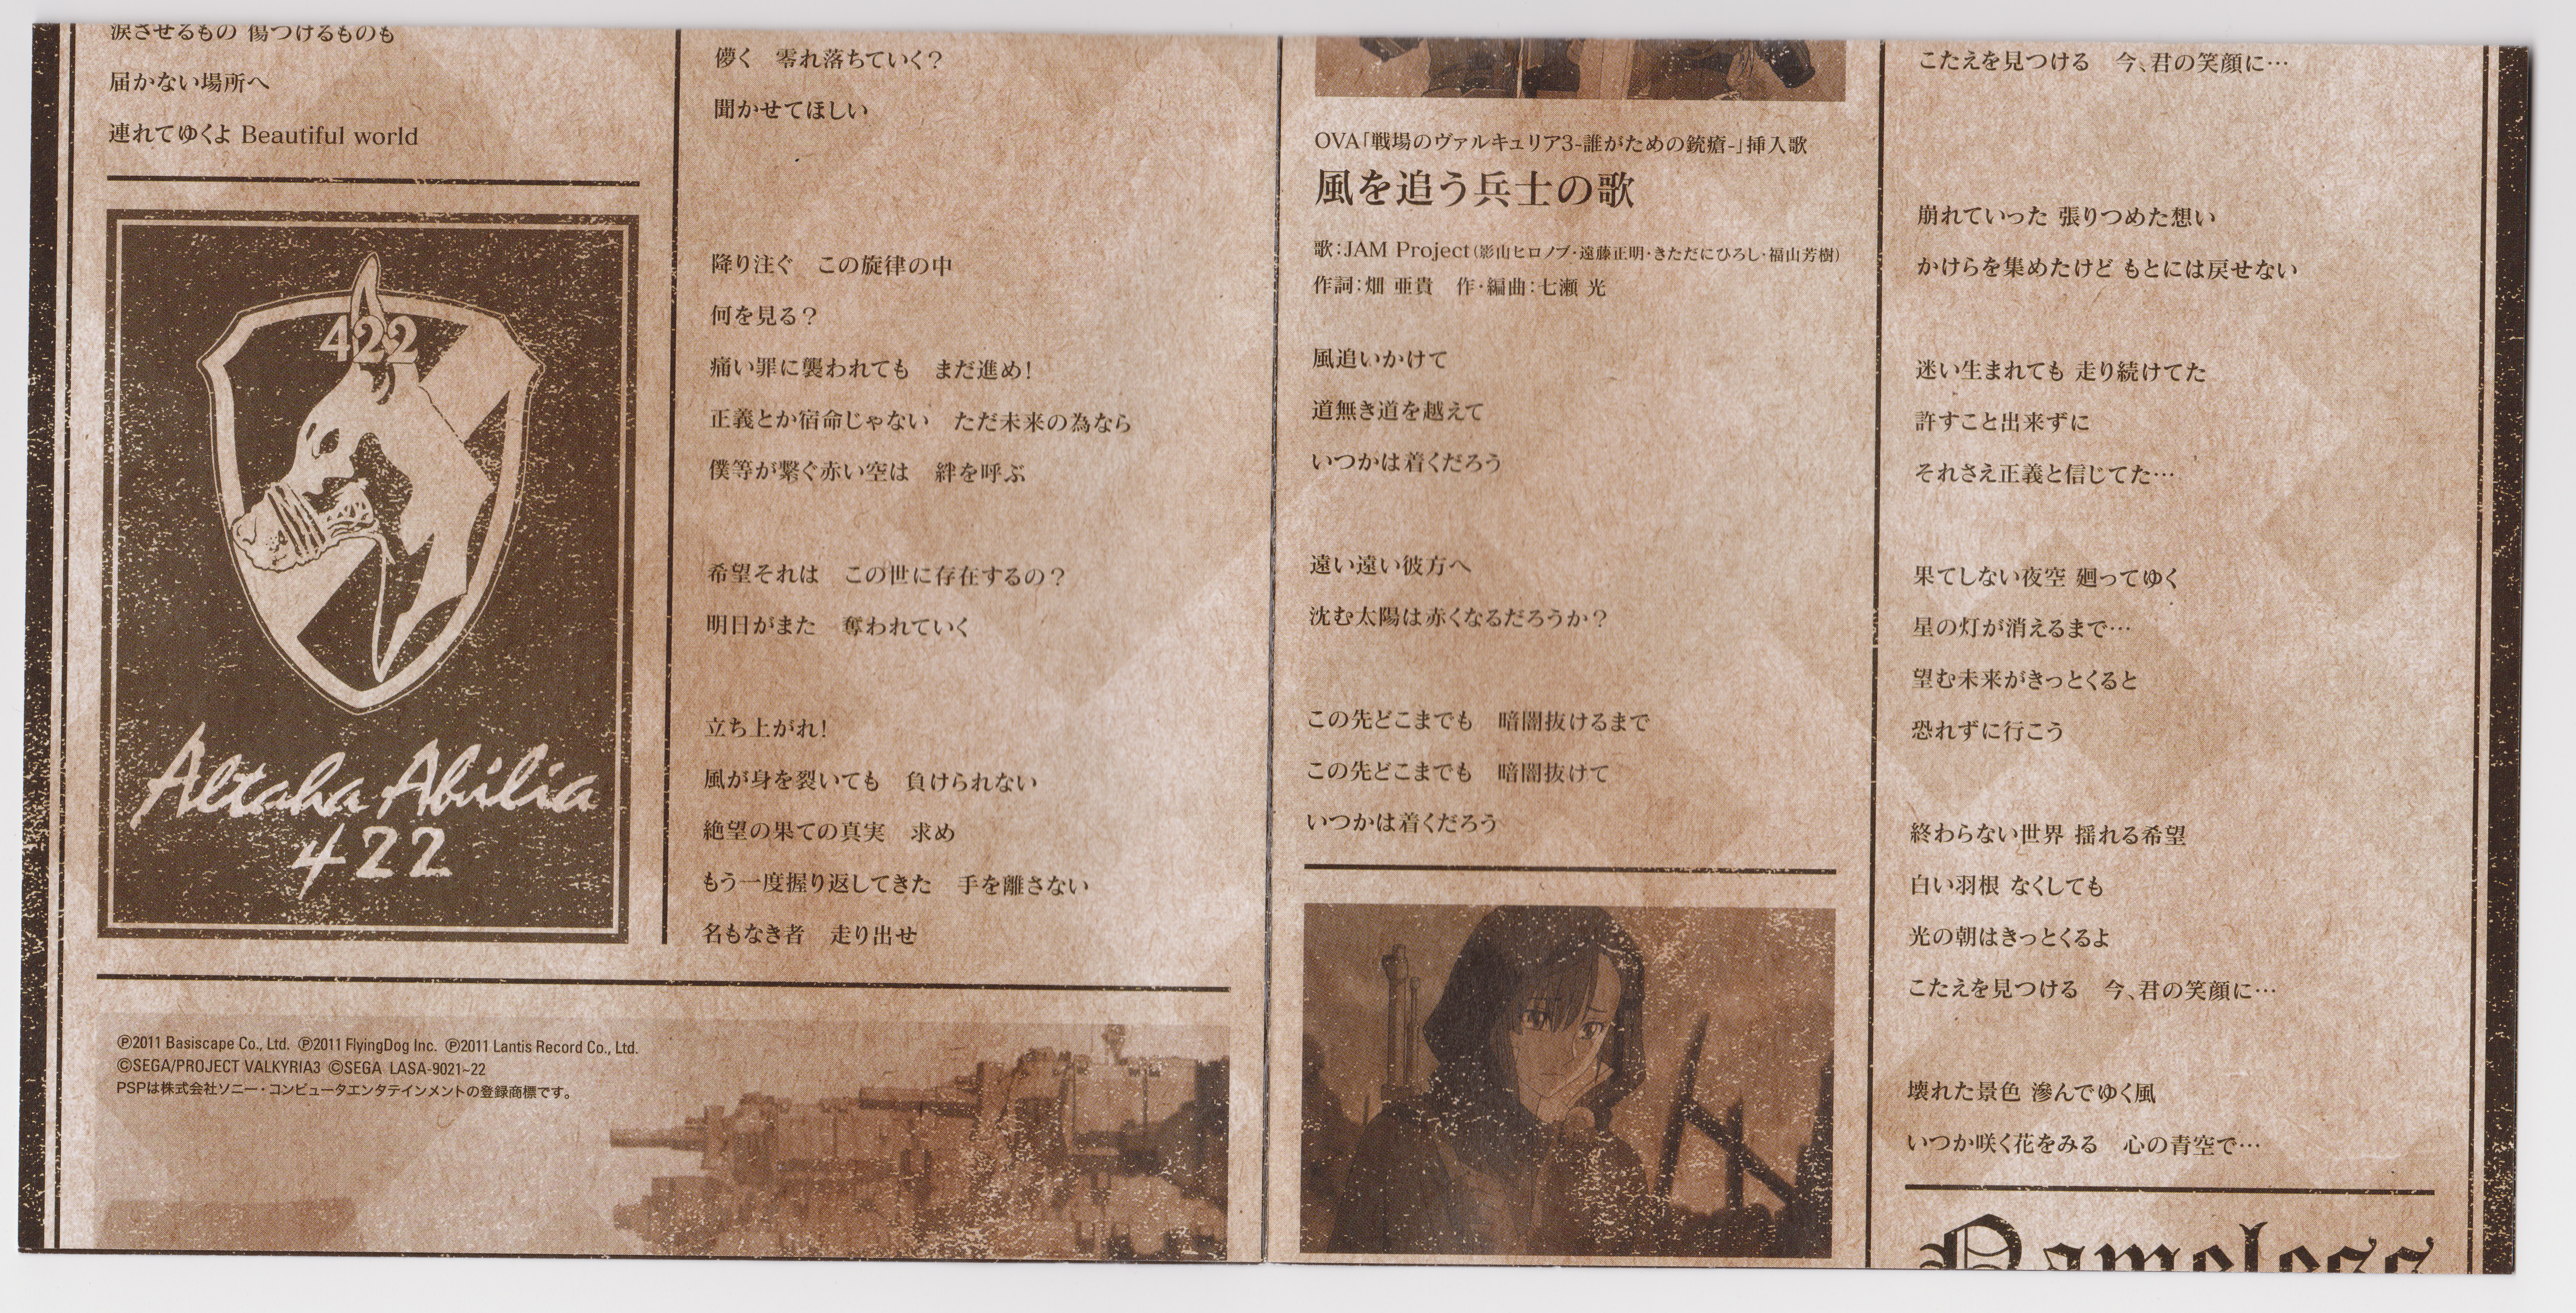 涙させるもの 傷つけるものも
届かない場所へ
連れてゆくよ Beautiful world
422
Altaha Abilia
422
儚く　零れ落ちていく?
聞かせてほしい
降り注ぐ　この旋律の中
何を見る?
痛い罪に襲われても　まだ進め!
正義とか宿命じゃない　ただ未来の為なら
僕等が繋ぐ赤い空は　絆を呼ぶ
希望それは　この世に存在するの?
明日がまた　奪われていく
立ち上がれ!
風が身を裂いても　負けられない
絶望の果ての真実　求め
もう一度握り返してきた　手を離さない
名もなき者　走り出せ
Ⓟ2011 Basiscape Co., Ltd. Ⓟ2011 FlyingDog Inc. Ⓟ2011 Lantis Record Co., Ltd.
©SEGA/PROJECT VALKYRIA3 ©SEGA LASA-9021~22
PSPは株式会社ソニー・コンピュータエンタテインメントの登録商標です。
OVA「戦場のヴァルキュリア3-誰がための銃瘡-」挿入歌
風を追う兵士の歌
歌:JAM Project(影山ヒロノブ・遠藤正明・きただにひろし・福山芳樹)
作詞:畑 亜貴　作・編曲:七瀬 光
風追いかけて
道無き道を越えて
いつかは着くだろう
遠い遠い彼方へ
沈む太陽は赤くなるだろうか?
この先どこまでも　暗闇抜けるまで
この先どこまでも　暗闇抜けて
いつかは着くだろう
こたえを見つける　今、君の笑顔に…
崩れていった 張りつめた想い
かけらを集めたけど もとには戻せない
迷い生まれても 走り続けてた
許すこと出来ずに
それさえ正義と信じてた…
果てしない夜空 廻ってゆく
星の灯が消えるまで…
望む未来がきっとくると
恐れずに行こう
終わらない世界 揺れる希望
白い羽根 なくしても
光の朝はきっとくるよ
こたえを見つける　今、君の笑顔に…
壊れた景色 滲んでゆく風
いつか咲く花をみる　心の青空で…
Nameless